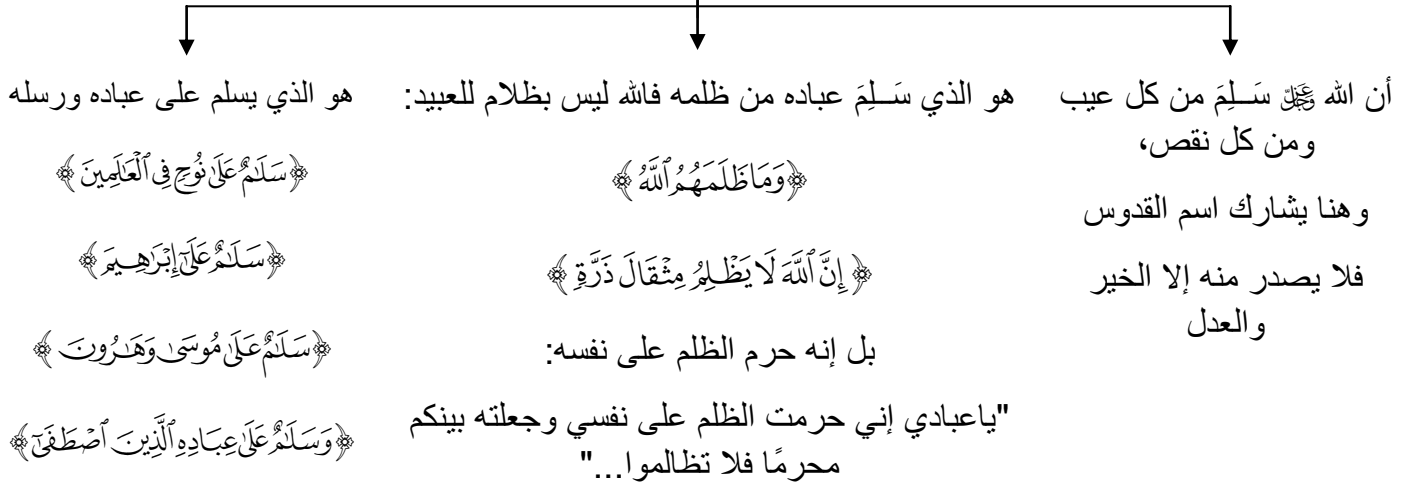 أن الله ﷻ سَلِمَ من كل عيب
ومن كل نقص،
وهنا يشارك اسم القدوس
فلا يصدر منه إلا الخير
والعدل
هو الذي سَلِمَ عباده من ظلمه فالله ليس بظلام للعبيد:
﴿وَمَا ظَلَمَهُمُ ٱللَّهُ﴾
﴿إِنَّ ٱللَّهَ لَا يَظْلِمُ مِثْقَالَ ذَرَّةٍ﴾
بل إنه حرم الظلم على نفسه:
"ياعبادي إني حرمت الظلم على نفسي وجعلته بينكم
محرمًا فلا تظالموا..."
هو الذي يسلم على عباده ورسله
﴿سَلَٰمٌ عَلَىٰ نُوحٍ فِي ٱلْعَٰلَمِينَ﴾
﴿سَلَٰمٌ عَلَىٰٓ إِبْرَٰهِيمَ﴾
﴿سَلَٰمٌ عَلَىٰ مُوسَىٰ وَهَٰرُونَ﴾
﴿وَسَلَٰمٌ عَلَىٰ عِبَادِهِ ٱلَّذِينَ ٱصْطَفَىٰٓ﴾